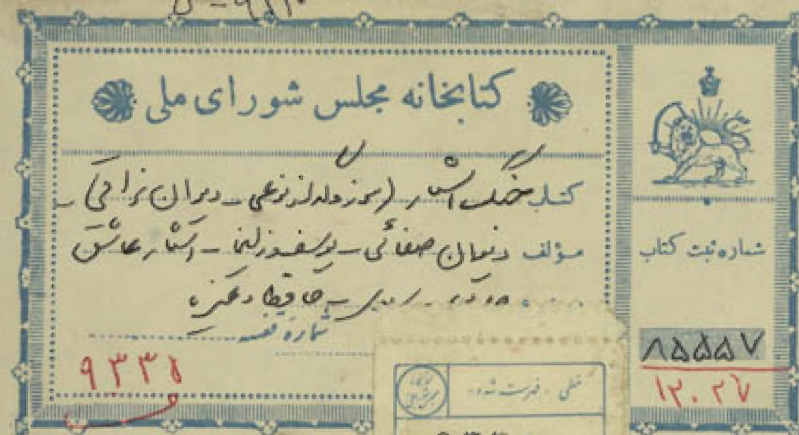 کتابخانه مجلس شورای ملی
کتاب جنگ اشعار (سوز و گداز نوعی - دیوان نراقی) -
مؤلف دیوان صفائی - یوسف و زلیخا - اشعار عاشق
حافظ و غیره
شماره قفسه
۹۳۳۵
شماره ثبت کتاب
۸۵۵۵۷
۱۳۰۲۷
خطی - فهرست شده